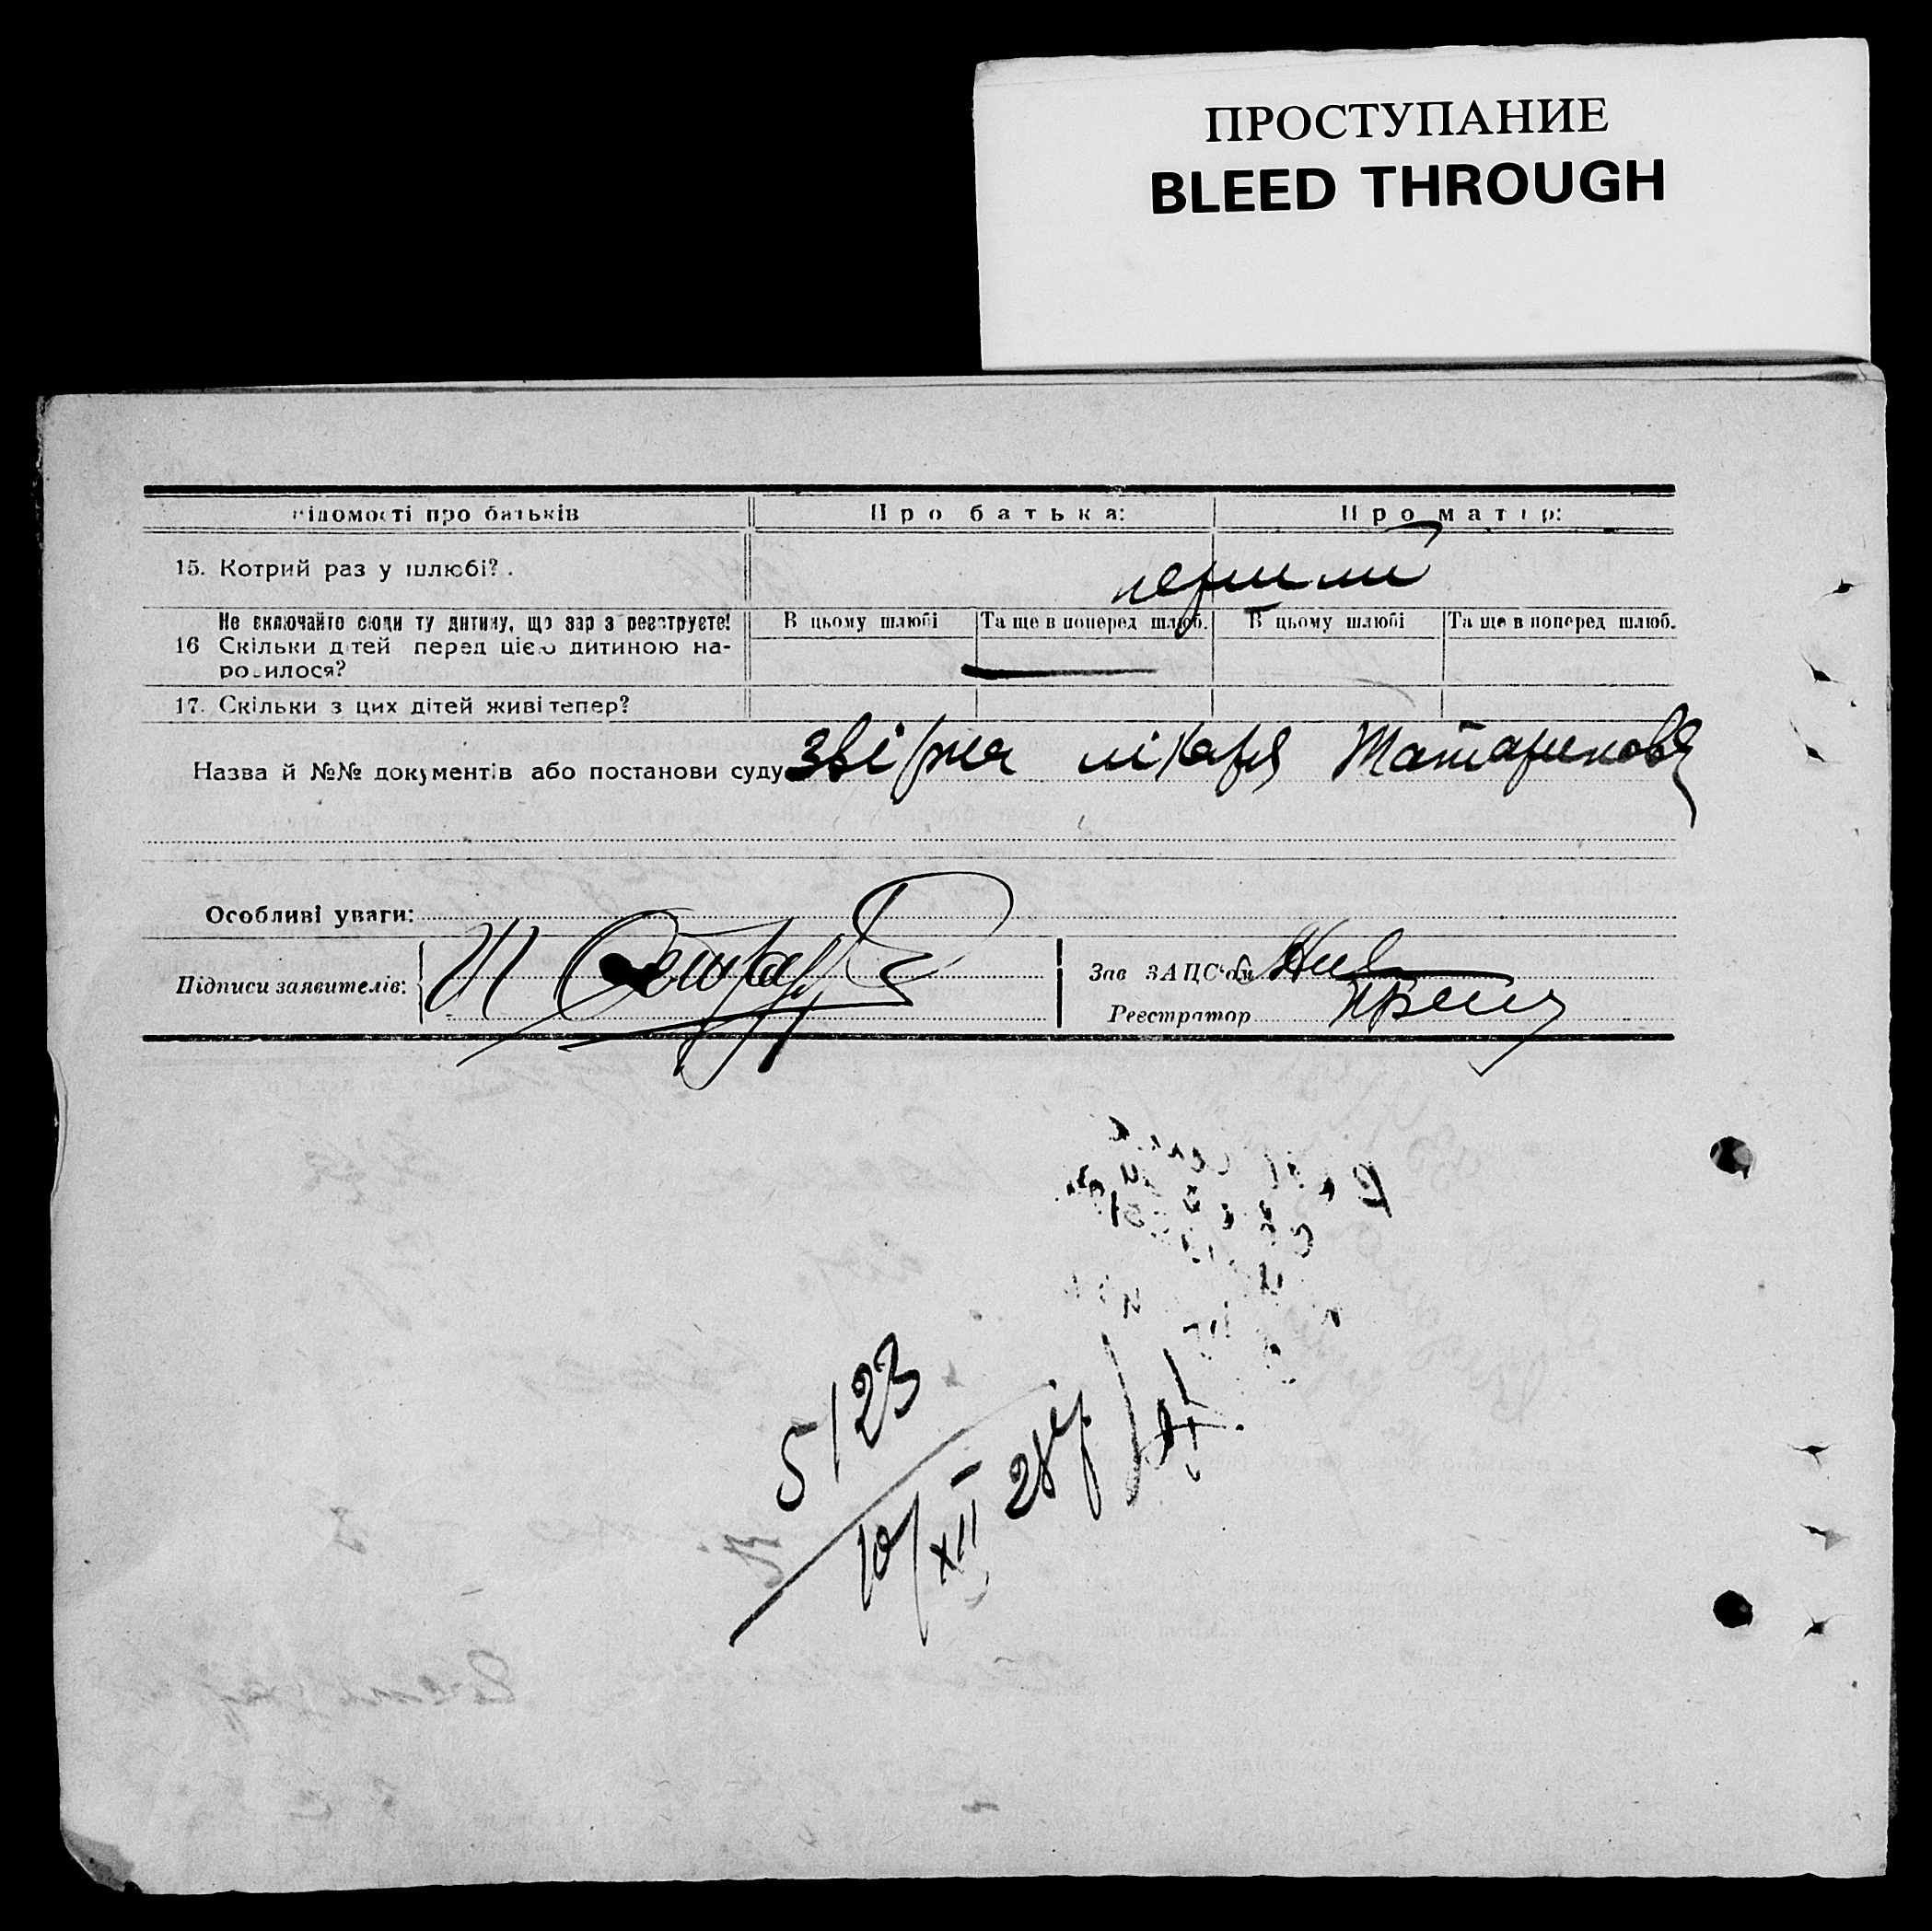 ПРОСТУПАНИЕ
BLEED THROUGH
відомості про батьків Про батька: Про матір:
15. Котрий раз у шлюбі? . перший
Не включайте сюди ту дитину, що зараз реєструєте! В цьому шлюбі Та ще в поперед шлюб. В цьому шлюбі Та ще в поперед шлюб.
16 Скільки дітей перед цією дитиною на-
родилося?
17. Скільки з цих дітей живі тепер?
Назва й №№ документів або постанови суду лікаря
Особливі уваги:
Підписи заявителів: Зав ЗАЦС'ом
Реєстратор
5123
10/XII - 28 р.